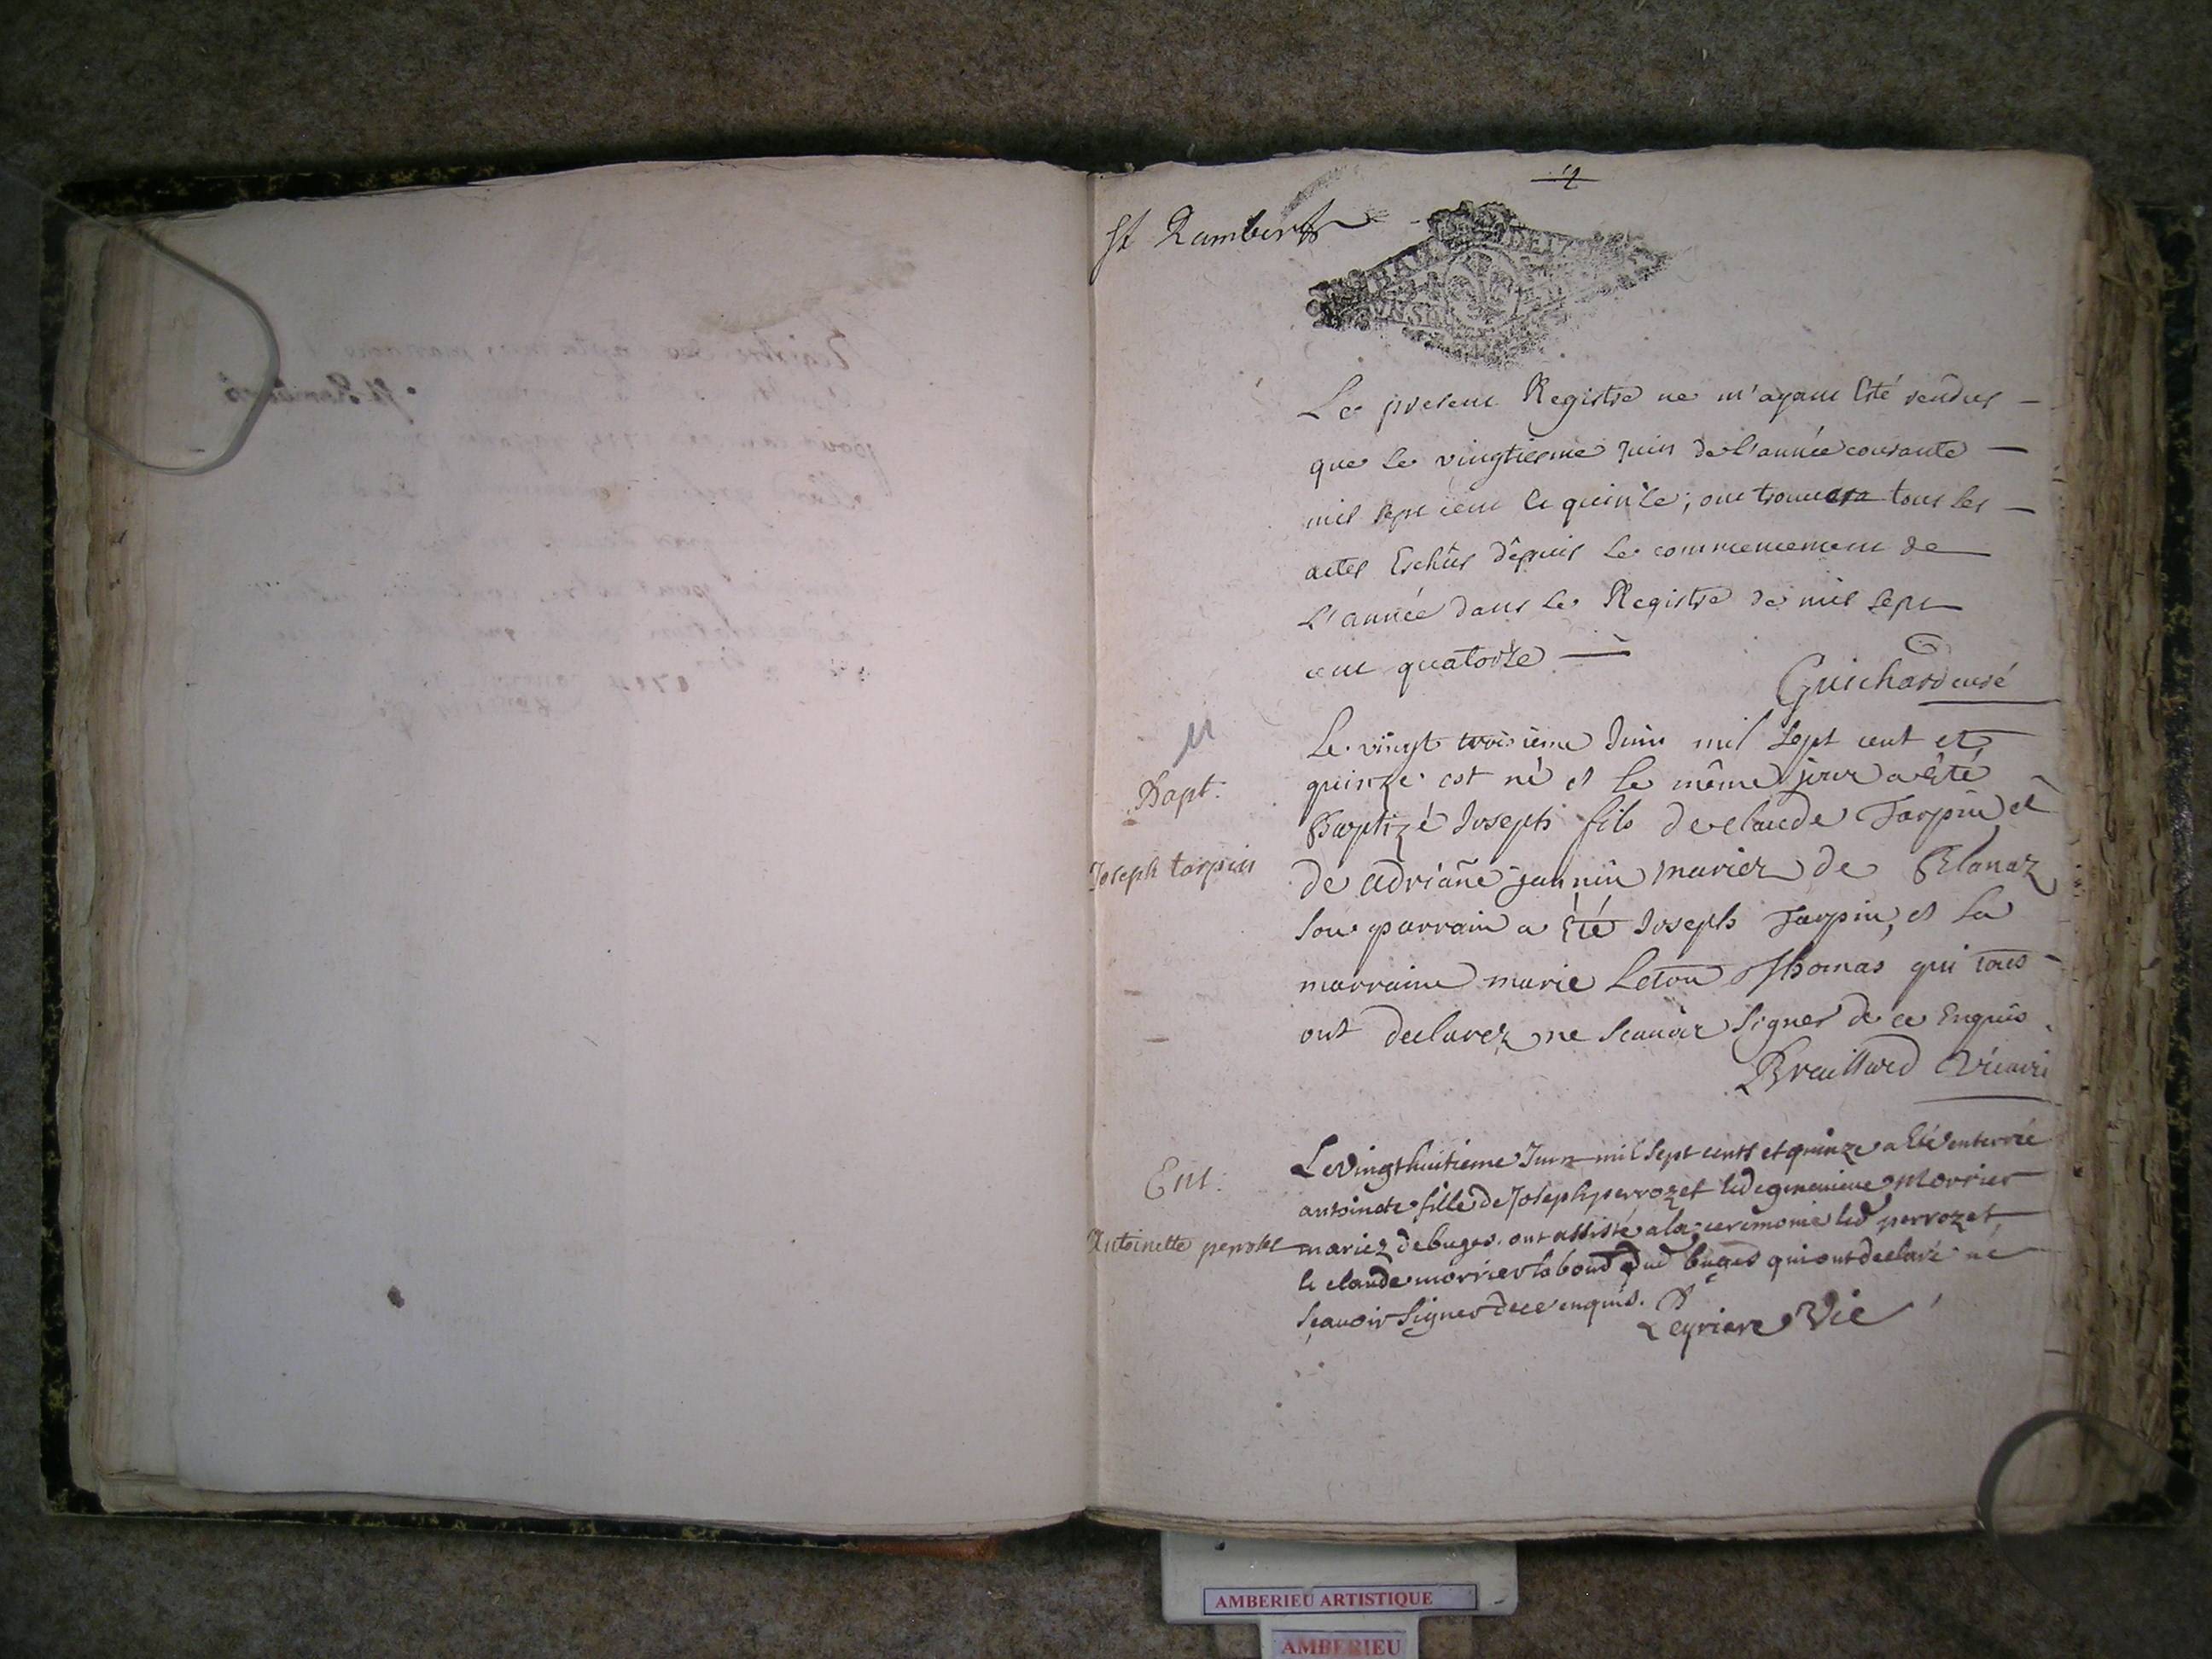 2
St Rambert
Le present Registre ne m'ayant Esté rendus
que le vingtiesme Juin de l'année courante
mil sept cent et quinze; on trouvera tous les
actes Eschûs dépuis le commencement de
L'année dans le Registre de mil sept
cent quatorze
Guichard curé
Bapt.
Joseph tarpin
Le vingt troisième Juin mil sept cent et
quinze est né et le même jour a été
Baptizé Joseph fils de claude Tarpin et
de adriañe jannin mariez de Blanaz
son parrain a été Joseph Tarpin, et la
marraine marie Thomas qui tous
ont declarez ne scauoir signer de ce Enquis
Braillard Vicaire
Ent.
Antoinette perrozet
Le Vingt huitieme Juin mil sept cents et quinze a Eté enterrée
antoinete fille de Joseph perrozet et de genevieve Morrier
mariez de buges. ont assisté a la ceremonie led perrozet,
et claude morrier dud buges qui ont declaré ne
sçauoir signer de ce enquis.
Leyriere Vic
AMBERIEU ARTISTIQUE
AMBERIEU